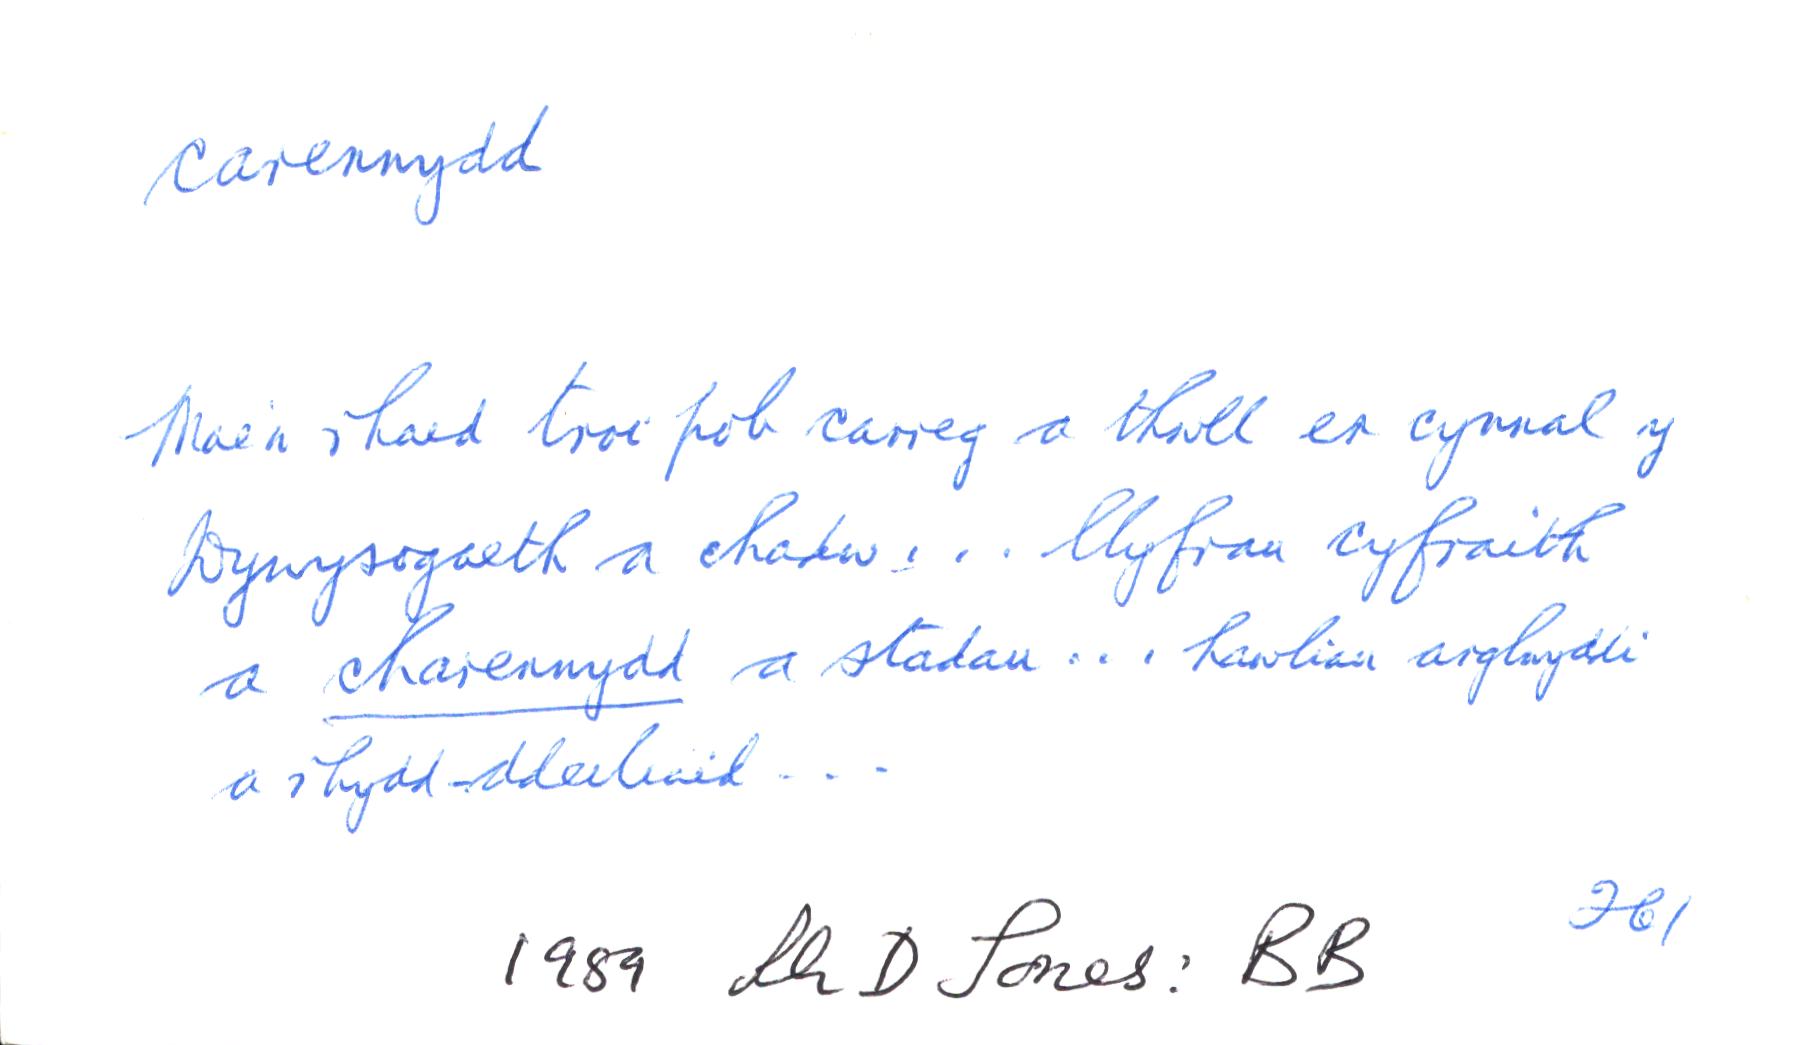 carennydd
Mae'n rhaid troi pob carreg a thwll er cynnal y
Dywysogaeth a chadw ... llyfrau cyfraith
a charennydd a stadau ... hawliau arglwyddi
a rhydd-ddeiliaid ...
261
1989 Rh D Jones: BB